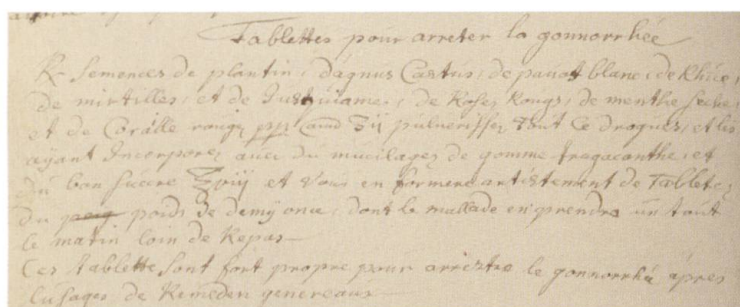 Tablettes pour arreter la gonnorrhée
R Semences de plantin, dagnus Castus, de pauot blanc, de Rhüe,
de mirtilles, et de Jusquiame, de Roses Rougs, de menthe seche,
et de Coralle rouge ppp ana ʒij pulverissez tout ce drogues, et les
ayant Incorporez avec du mucilages de gomme tragacanthe, et
du bon succre ℥viij et vous en formere artistement de Tabletes
du poids de demy once, dont le mallade en prendra un tout
le matin loin de Repas
Ces tablette sont fort propre pour arrester le gonnorrhée apres
lusages de Remeden genereaux